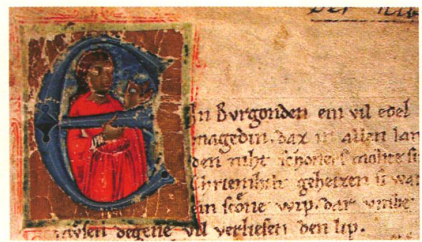 E
In Bvrgonden ein vil edel
magedin. daz in allen lan
den niht schoners mohte si
Chriemhilt geheizen si wa
ein scone wip. dar vmbe
degene vil verliesen den lip.